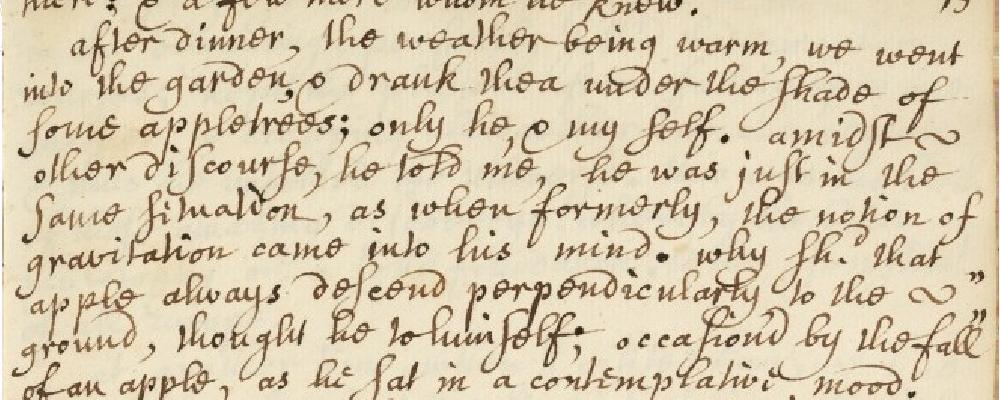 there; & a few more whom he knew. 15
after dinner, the weather being warm, we went
into the garden, & drank thea under the shade of
some appletrees; only he, & my self. amidst
other discourse, he told me, he was just in the
same situation, as when formerly, the notion of
gravitation came into his mind. why sh.d that
apple always descend perpendicularly to the "
ground, thought he to himself; occasion'd by the fall"
of an apple, as he sat in a contemplative mood.